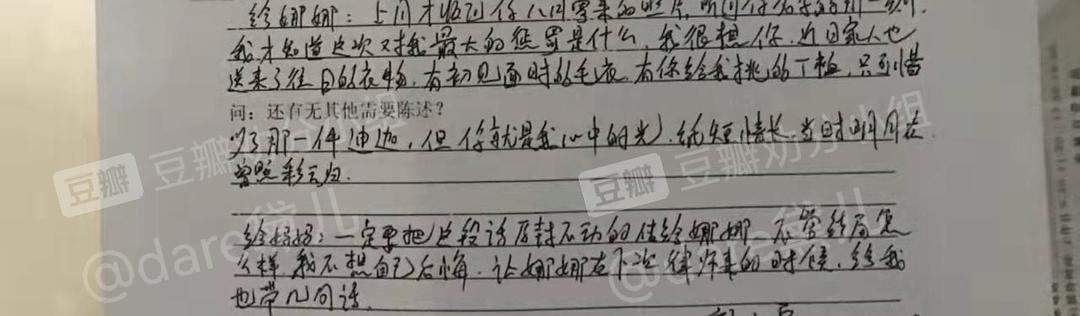 给娜娜：上周才收到你八月寄来的照片，
我才知道这次对我最大的惩罚是什么，我很想你，近日家人也
送来了往日的衣物，有初见面时的毛衣，有你给我挑的T恤，只可惜
问：还有无其他需要陈述？
少了那一件迪迦，但你就是我心中的光，纸短情长，当时明月在
曾照彩云归.
给妈妈：一定要把这段话原封不动的传给娜娜，不管结局怎
么样，我不想自己后悔，让娜娜在下次律师来的时候，给我
也带几句话.
豆瓣
豆瓣
豆瓣劝分小组
@dare
@dare